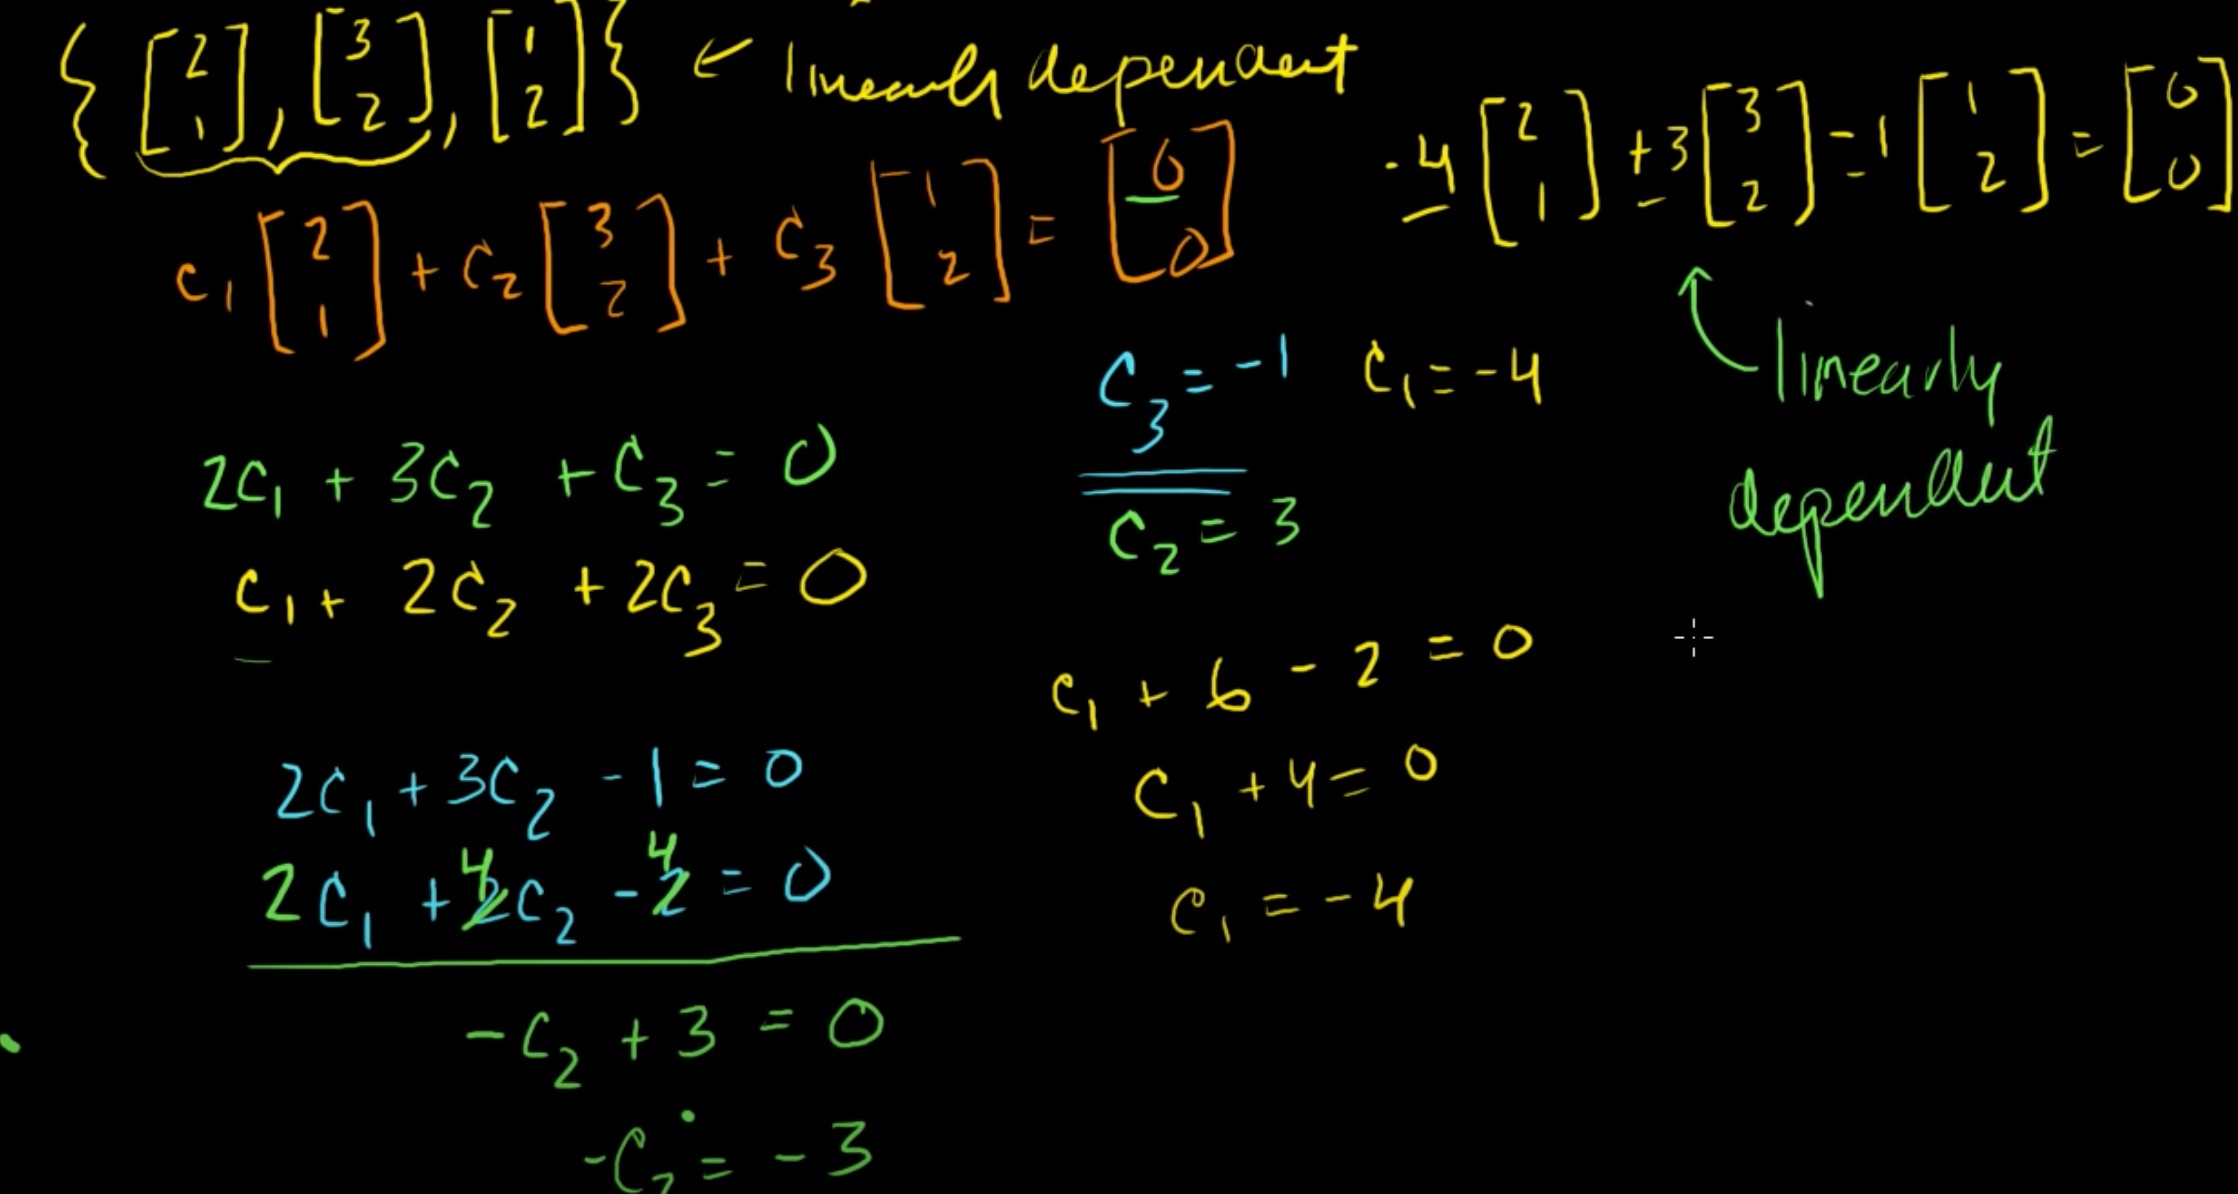 {[2 1], [3 2], [1 2]} ← linearly dependent
c₁[2 1] + c₂[3 2] + c₃[1 2] = [0 0]
-4[2 1] + 3[3 2] - 1[1 2] = [0 0]
linearly
dependent
c₃ = -1 c₁ = -4
c₂ = 3
2c₁ + 3c₂ + c₃ = 0
c₁ + 2c₂ + 2c₃ = 0
c₁ + 6 - 2 = 0
c₁ + 4 = 0
c₁ = -4
2c₁ + 3c₂ - 1 = 0
2c₁ + 4c₂ - 4 = 0
-c₂ + 3 = 0
-c₂ = -3